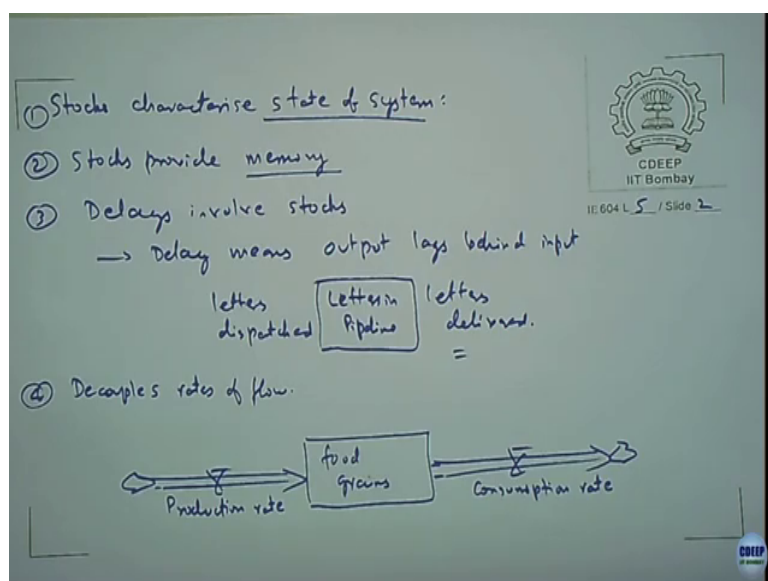 ① Stocks characterise state of system:
② Stocks provide memory
③ Delays involve stocks
→ Delay means output lags behind input
letters dispatched
Letters in Pipeline
letters delivered.
=
④ Decouples rates of flow.
food grains
Production rate
Consumption rate
CDEEP
IIT Bombay
IE 604 L 5 / Slide 2
CDEEP
IIT BOMBAY